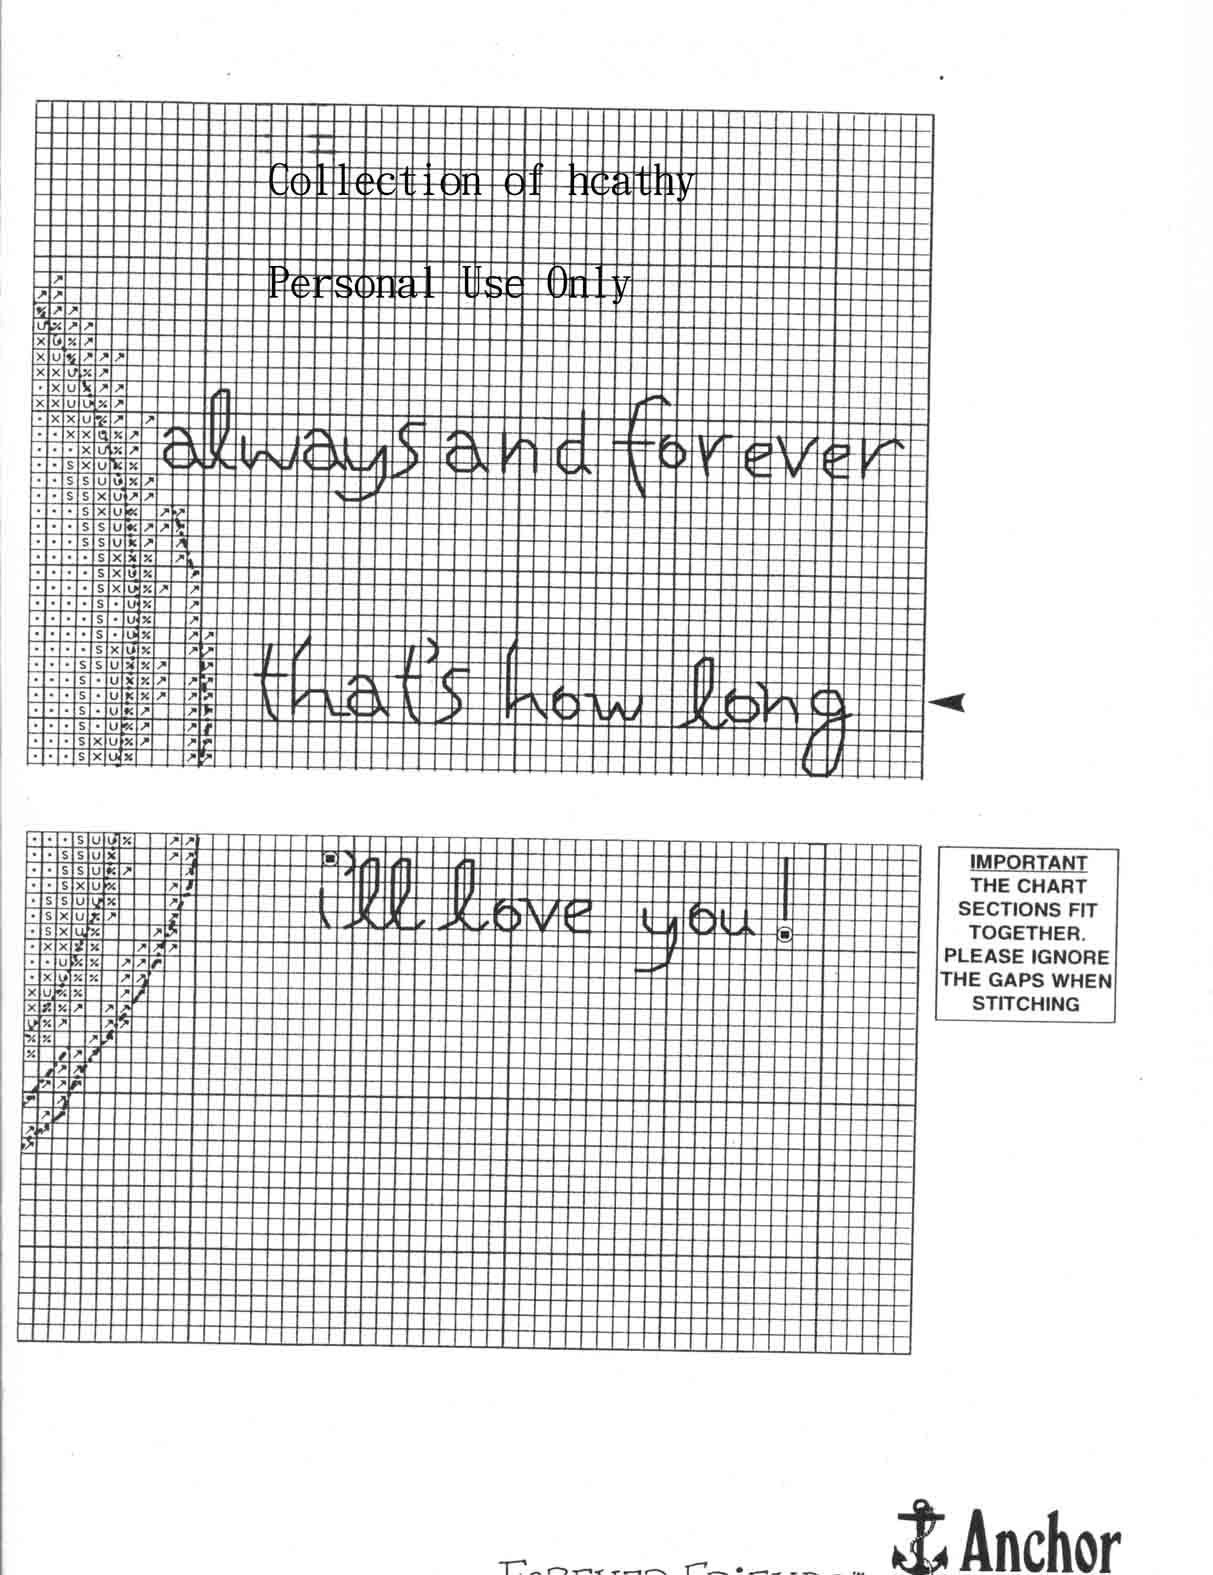 Collection of hcathy
Personal Use Only
always and forever
that's how long
i'll love you!
IMPORTANT
THE CHART
SECTIONS FIT
TOGETHER.
PLEASE IGNORE
THE GAPS WHEN
STITCHING
Anchor
FOREVER FRIENDS™